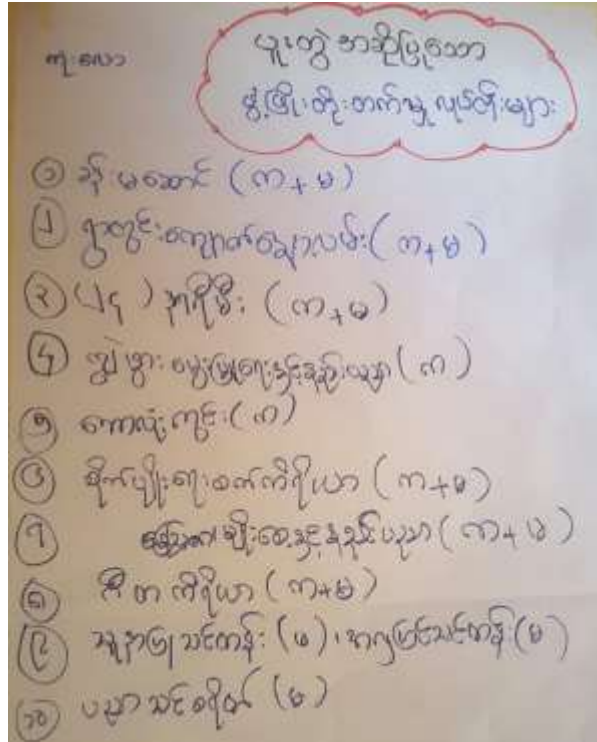 ကုးလော
ပူးတွဲ အဆိုပြုသော
ဖွံ့ဖြိုးတိုးတက်မှု လုပ်ငန်းများ
၁ ခိုးမဆောင် (က+မ)
၂ ရွာတွင်းကျောက်ချောလမ်း (က+မ)
၃ (၂၄) နာရီမီး (က+မ)
၄ ကျွဲ ဖွား မွေးမြူရေးနှင့်နည်းပညာ (က)
၅ ဘောလုံးကွင်း (က)
၆ စိုက်ပျိုးရေးစက်ကိရိယာ (က+မ)
၇ မျိုးစေ့နှင့်နည်းပညာ (က+မ)
၈ ဂီတကိရိယာ (က+မ)
၉ သူနာပြုသင်တန်း (မ)၊ အလှပြင်သင်တန်း (မ)
၁၀ ပညာသင်စရိတ် (မ)